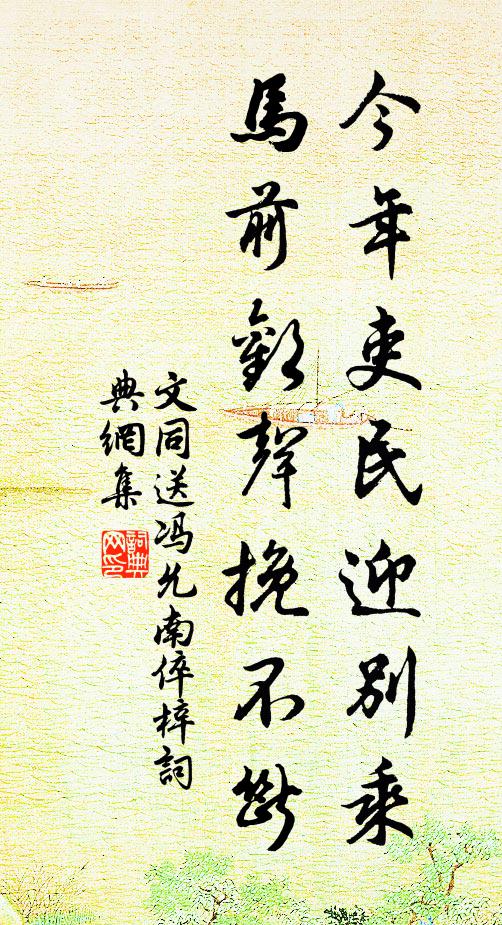 今年吏民迎別乘
馬前歡聲挽不斷
文同送冯允南倅梓詞
典網集
詞典网印